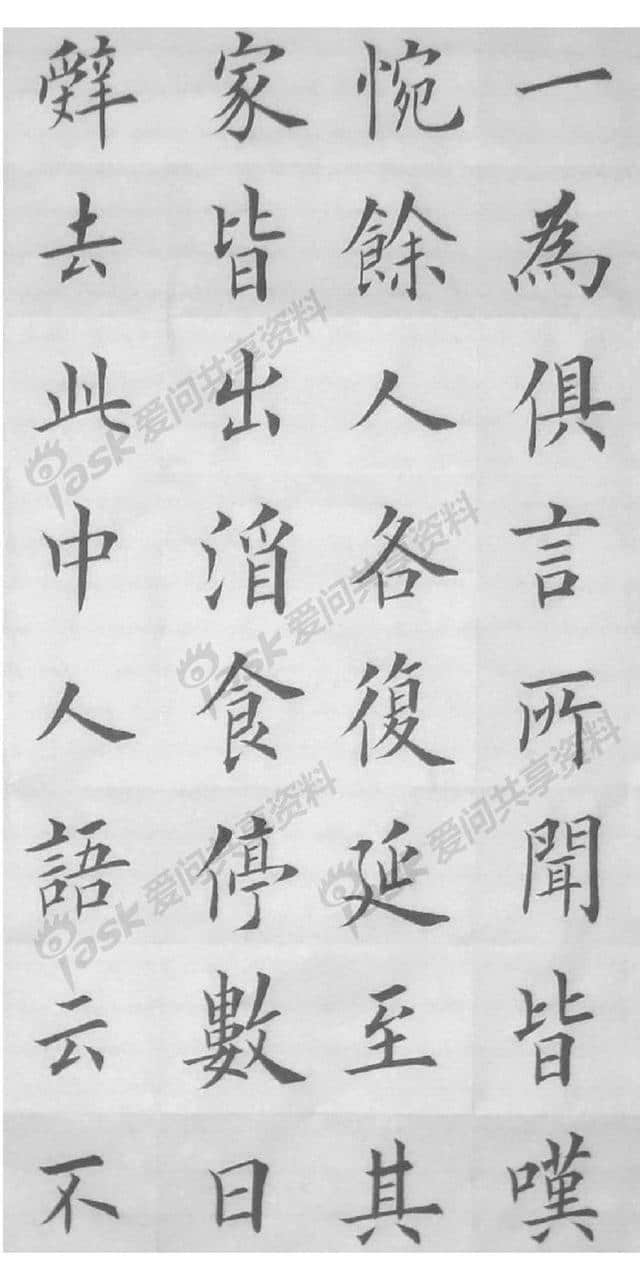 一為俱言所聞皆嘆
惋餘人各復延至其
家皆出酒食停數日
辤去此中人語云不
iask 爱问共享资料
iask 爱问共享资料
iask 爱问共享资料
iask 爱问共享资料